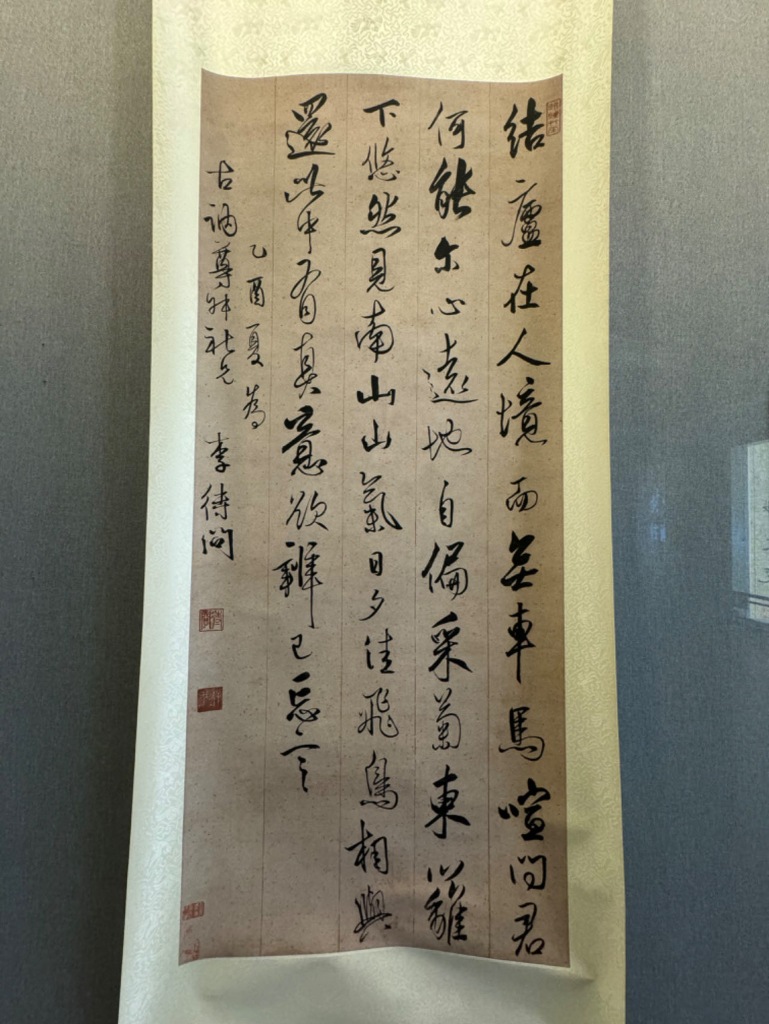 結廬在人境而無車馬喧問君
何能尔心遠地自偏采菊東籬
下悠然見南山山氣日夕佳飛鳥相與
還此中有真意欲辨已忘言
乙酉夏為
古訥尊社兄 李待問